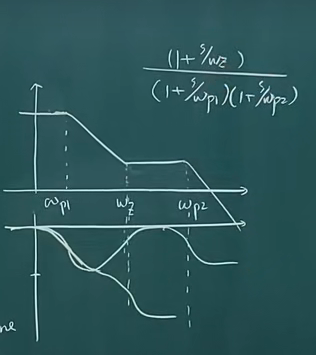 (1+s/ωz)
(1+s/ωp1)(1+s/ωp2)
ωp1 ωz ωp2